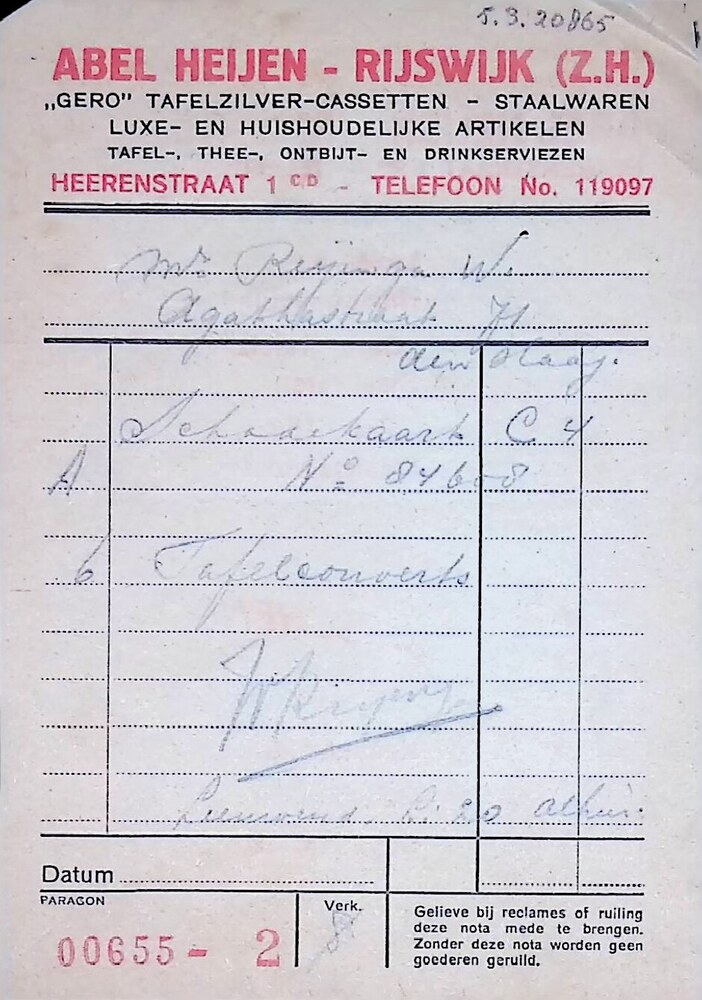 5.3.20865
ABEL HEIJEN - RIJSWIJK (Z.H.)
„GERO” TAFELZILVER-CASSETTEN - STAALWAREN
LUXE- EN HUISHOUDELIJKE ARTIKELEN
TAFEL-, THEE-, ONTBIJT- EN DRINKSERVIEZEN
HEERENSTRAAT 1 CD - TELEFOON No. 119097
W.
Agathastraat 71
den Haag.
C 4
A No 84608
6 Tafelcouverts
20
Datum
PARAGON
Verk.
00655 - 2
Gelieve bij reclames of ruiling
deze nota mede te brengen.
Zonder deze nota worden geen
goederen geruild.